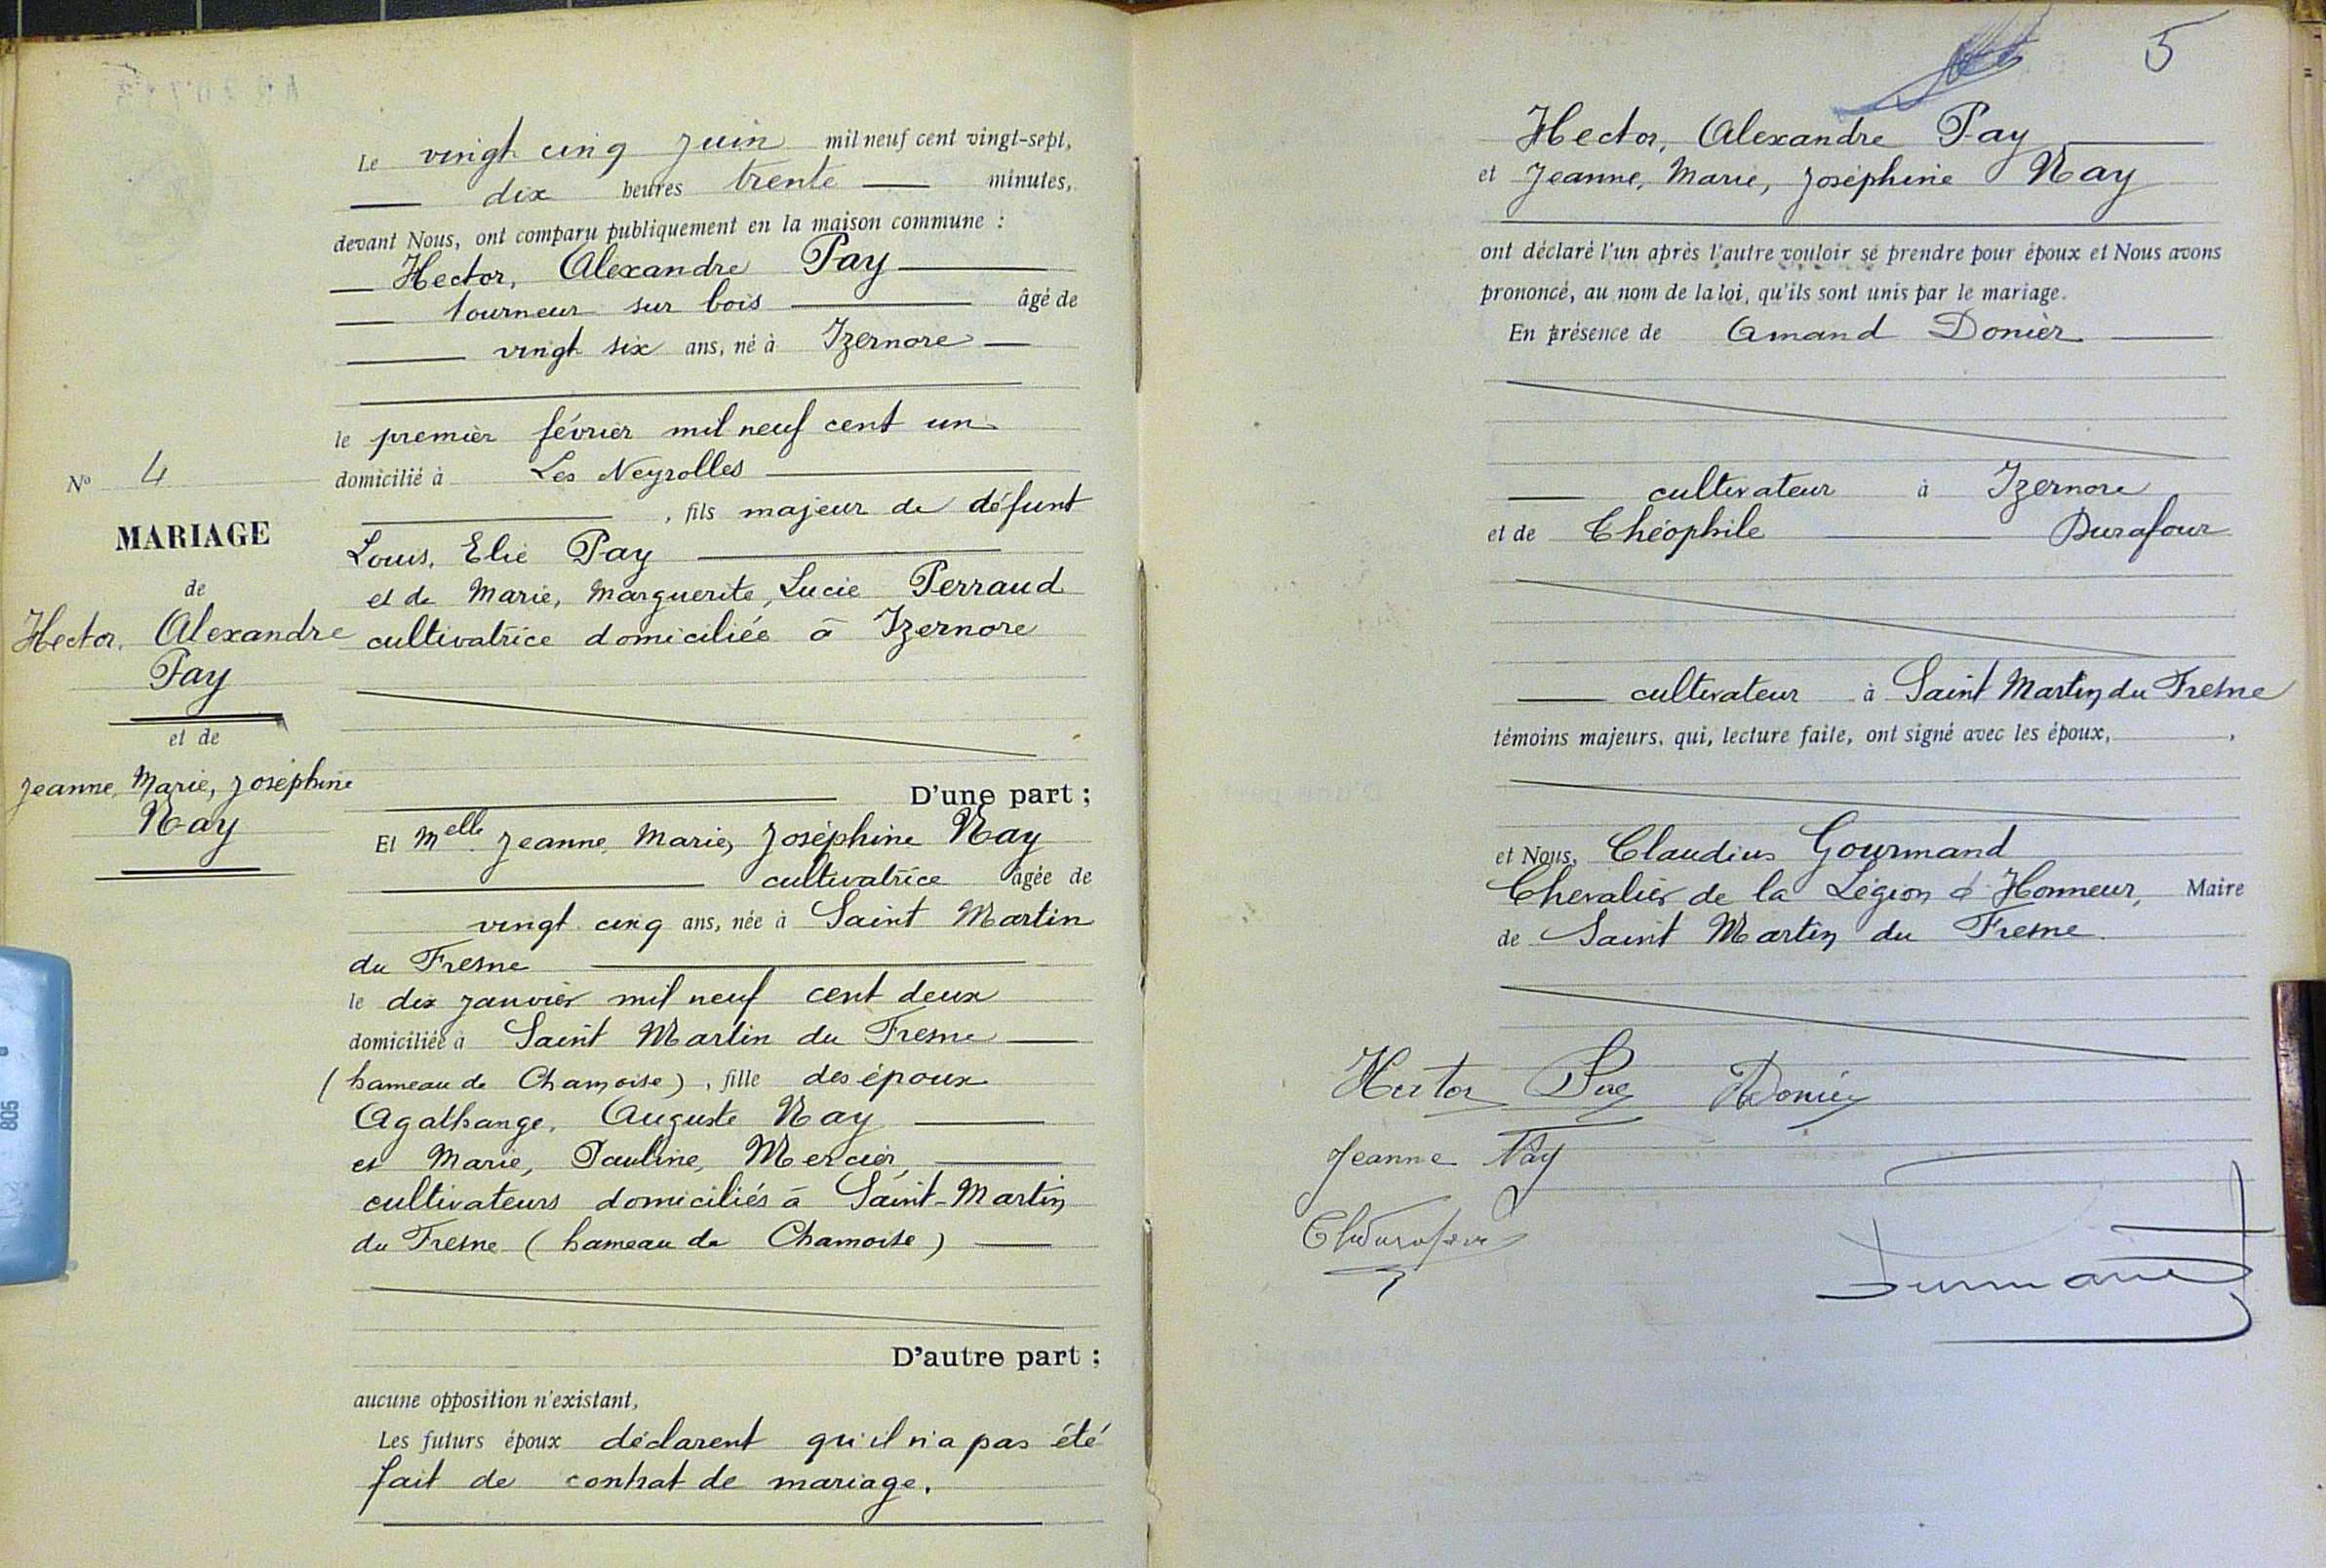 Le vingt cinq Juin mil neuf cent vingt-sept,
dix heures trente minutes,
devant Nous, ont comparu publiquement en la maison commune :
Hector, Alexandre Pay
tourneur sur bois âgé de
vingt six ans, né à Izernore
le premier février mil neuf cent un
domicilié à Les Neyrolles
, fils majeur de défunt
Louis, Elie Pay
et de Marie, Marguerite, Lucie Perraud
cultivatrice domiciliée à Izernore
D'une part ;
Et Melle Jeanne, Marie, Joséphine Nay
cultivatrice âgée de
vingt cinq ans, née à Saint Martin
du Fresne
le dix janvier mil neuf cent deux
domiciliée à Saint Martin du Fresne
(hameau de Chamoise), fille des époux
Agathange, Auguste Nay
et Marie, Pauline, Mercier,
cultivateurs domiciliés à Saint-Martin
du Fresne (hameau de Chamoise)
D'autre part ;
aucune opposition n'existant,
Les futurs époux déclarent qu'il n'a pas été
fait de contrat de mariage.
No 4
MARIAGE
de
Hector, Alexandre
Pay
et de
Jeanne, Marie, Joséphine
Nay
5
Hector, Alexandre Pay
et Jeanne, Marie, Joséphine Nay
ont déclaré l'un après l'autre vouloir se prendre pour époux et Nous avons
prononcé, au nom de la loi, qu'ils sont unis par le mariage.
En présence de Amand Donier
cultivateur à Izernore
et de Théophile Durafour
cultivateur à Saint Martin du Fresne
témoins majeurs, qui, lecture faite, ont signé avec les époux,
et Nous, Claudius Gourmand
Chevalier de la Légion d'Honneur, Maire
de Saint Martin du Fresne
Hector Pay Donier
Jeanne Nay